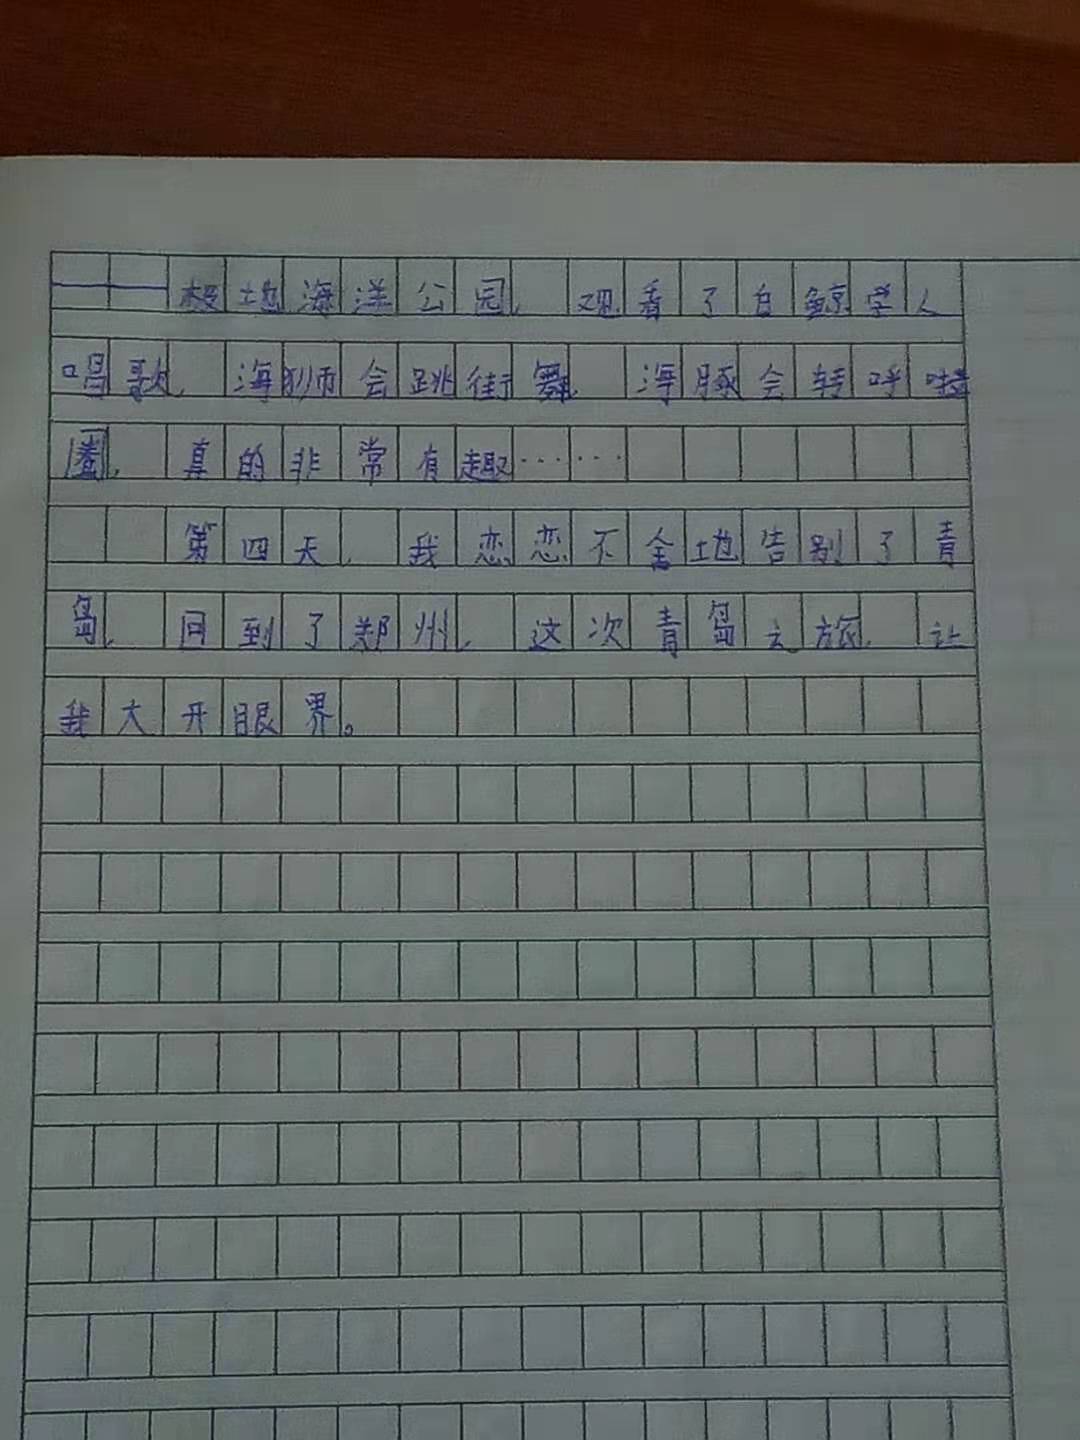 ——极地海洋公园，观看了白鲸学人
唱歌，海狮会跳街舞，海豚会转呼啦
圈，真的非常有趣……
第四天，我恋恋不舍地告别了青
岛，回到了郑州，这次青岛之旅，让
我大开眼界。